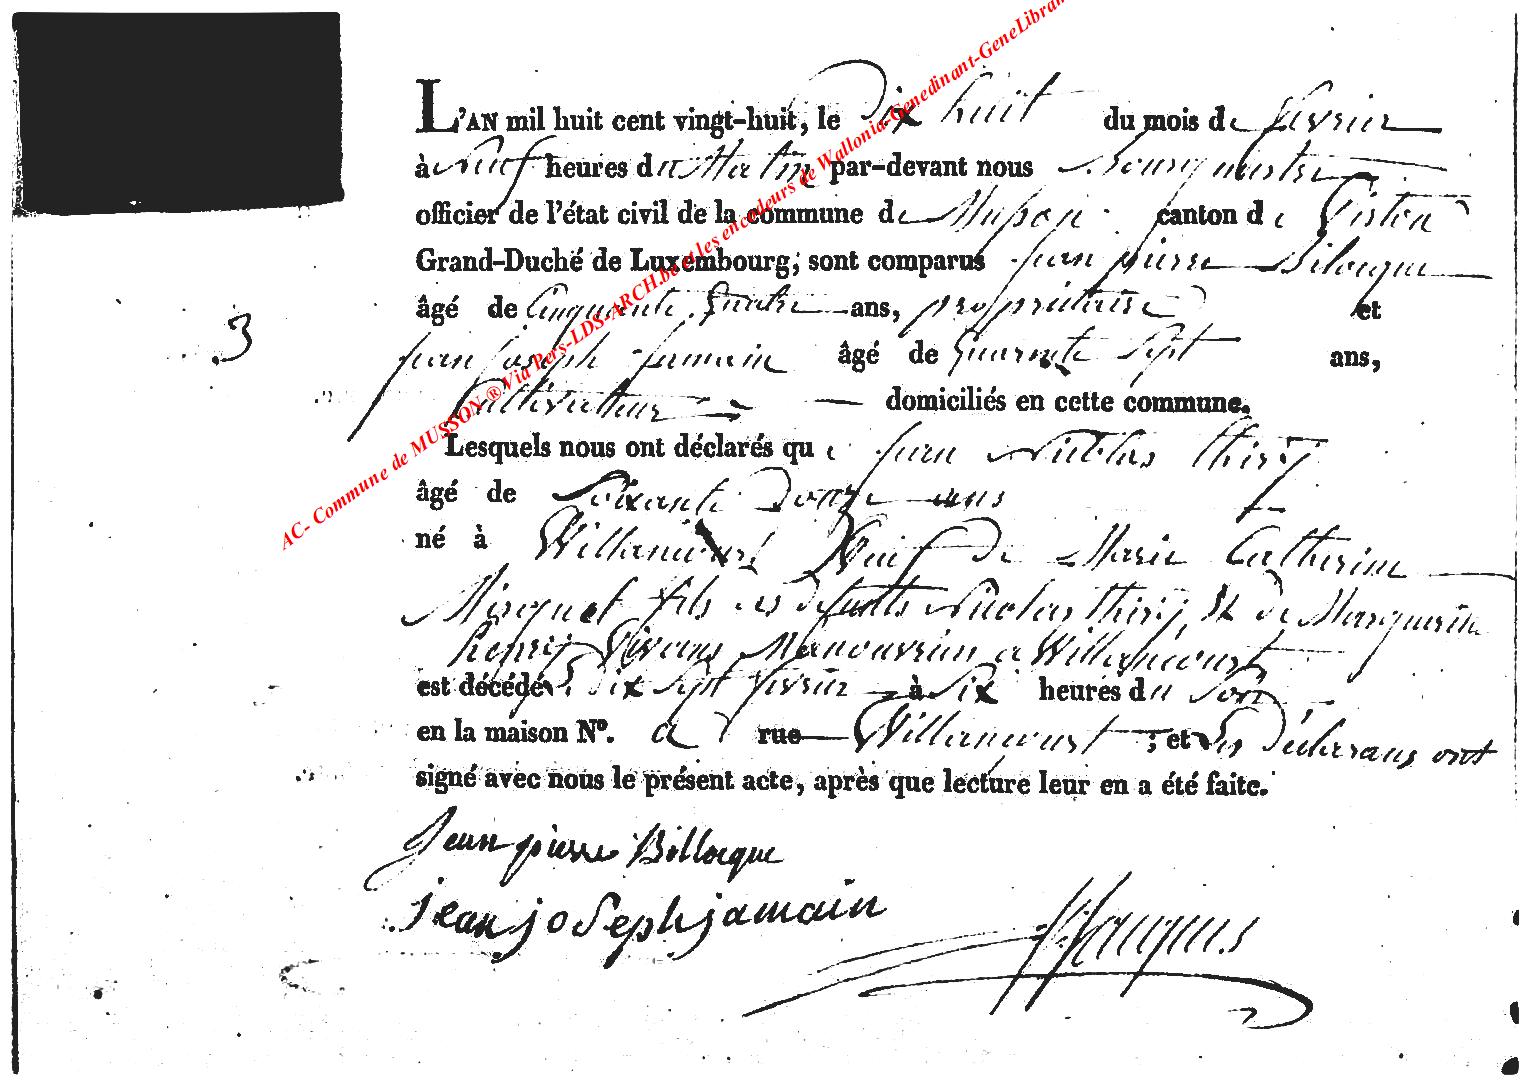 L'AN mil huit cent vingt-huit, le Dix huit du mois de fevrier
à Neuf heures du Matin par-devant nous Bourguemestre
officier de l'état civil de la commune de Musson canton de Virton
Grand-Duché de Luxembourg; sont comparus Jean pierre Bilocque
âgé de Cinquante Quatre ans, propriétaire et
3
jean joseph jamain âgé de Quarente Sept ans,
Cultivatteur domiciliés en cette commune.
Lesquels nous ont déclarés que jean Nicolas thiry
âgé de Soixante Douze ans
né à Willancourt Veuf De Marie Catherine
fils des defunts Nicolas thiry Et De Marguerite
henry Vivans Manouvriers a Willancourt
est décédé le dix Sept fevrier à Six heures du Soir
en la maison N°. a rue Willancourt ; et Les Déclarans ont
signé avec nous le présent acte, après que lecture leur en a été faite.
Jean pierre Billocque
jean joseph jamain
AC- Commune de MUSSON ® Via Pers-LDS-ARCH.be et les encodeurs de Wallonia-Genedinant-GeneLibran